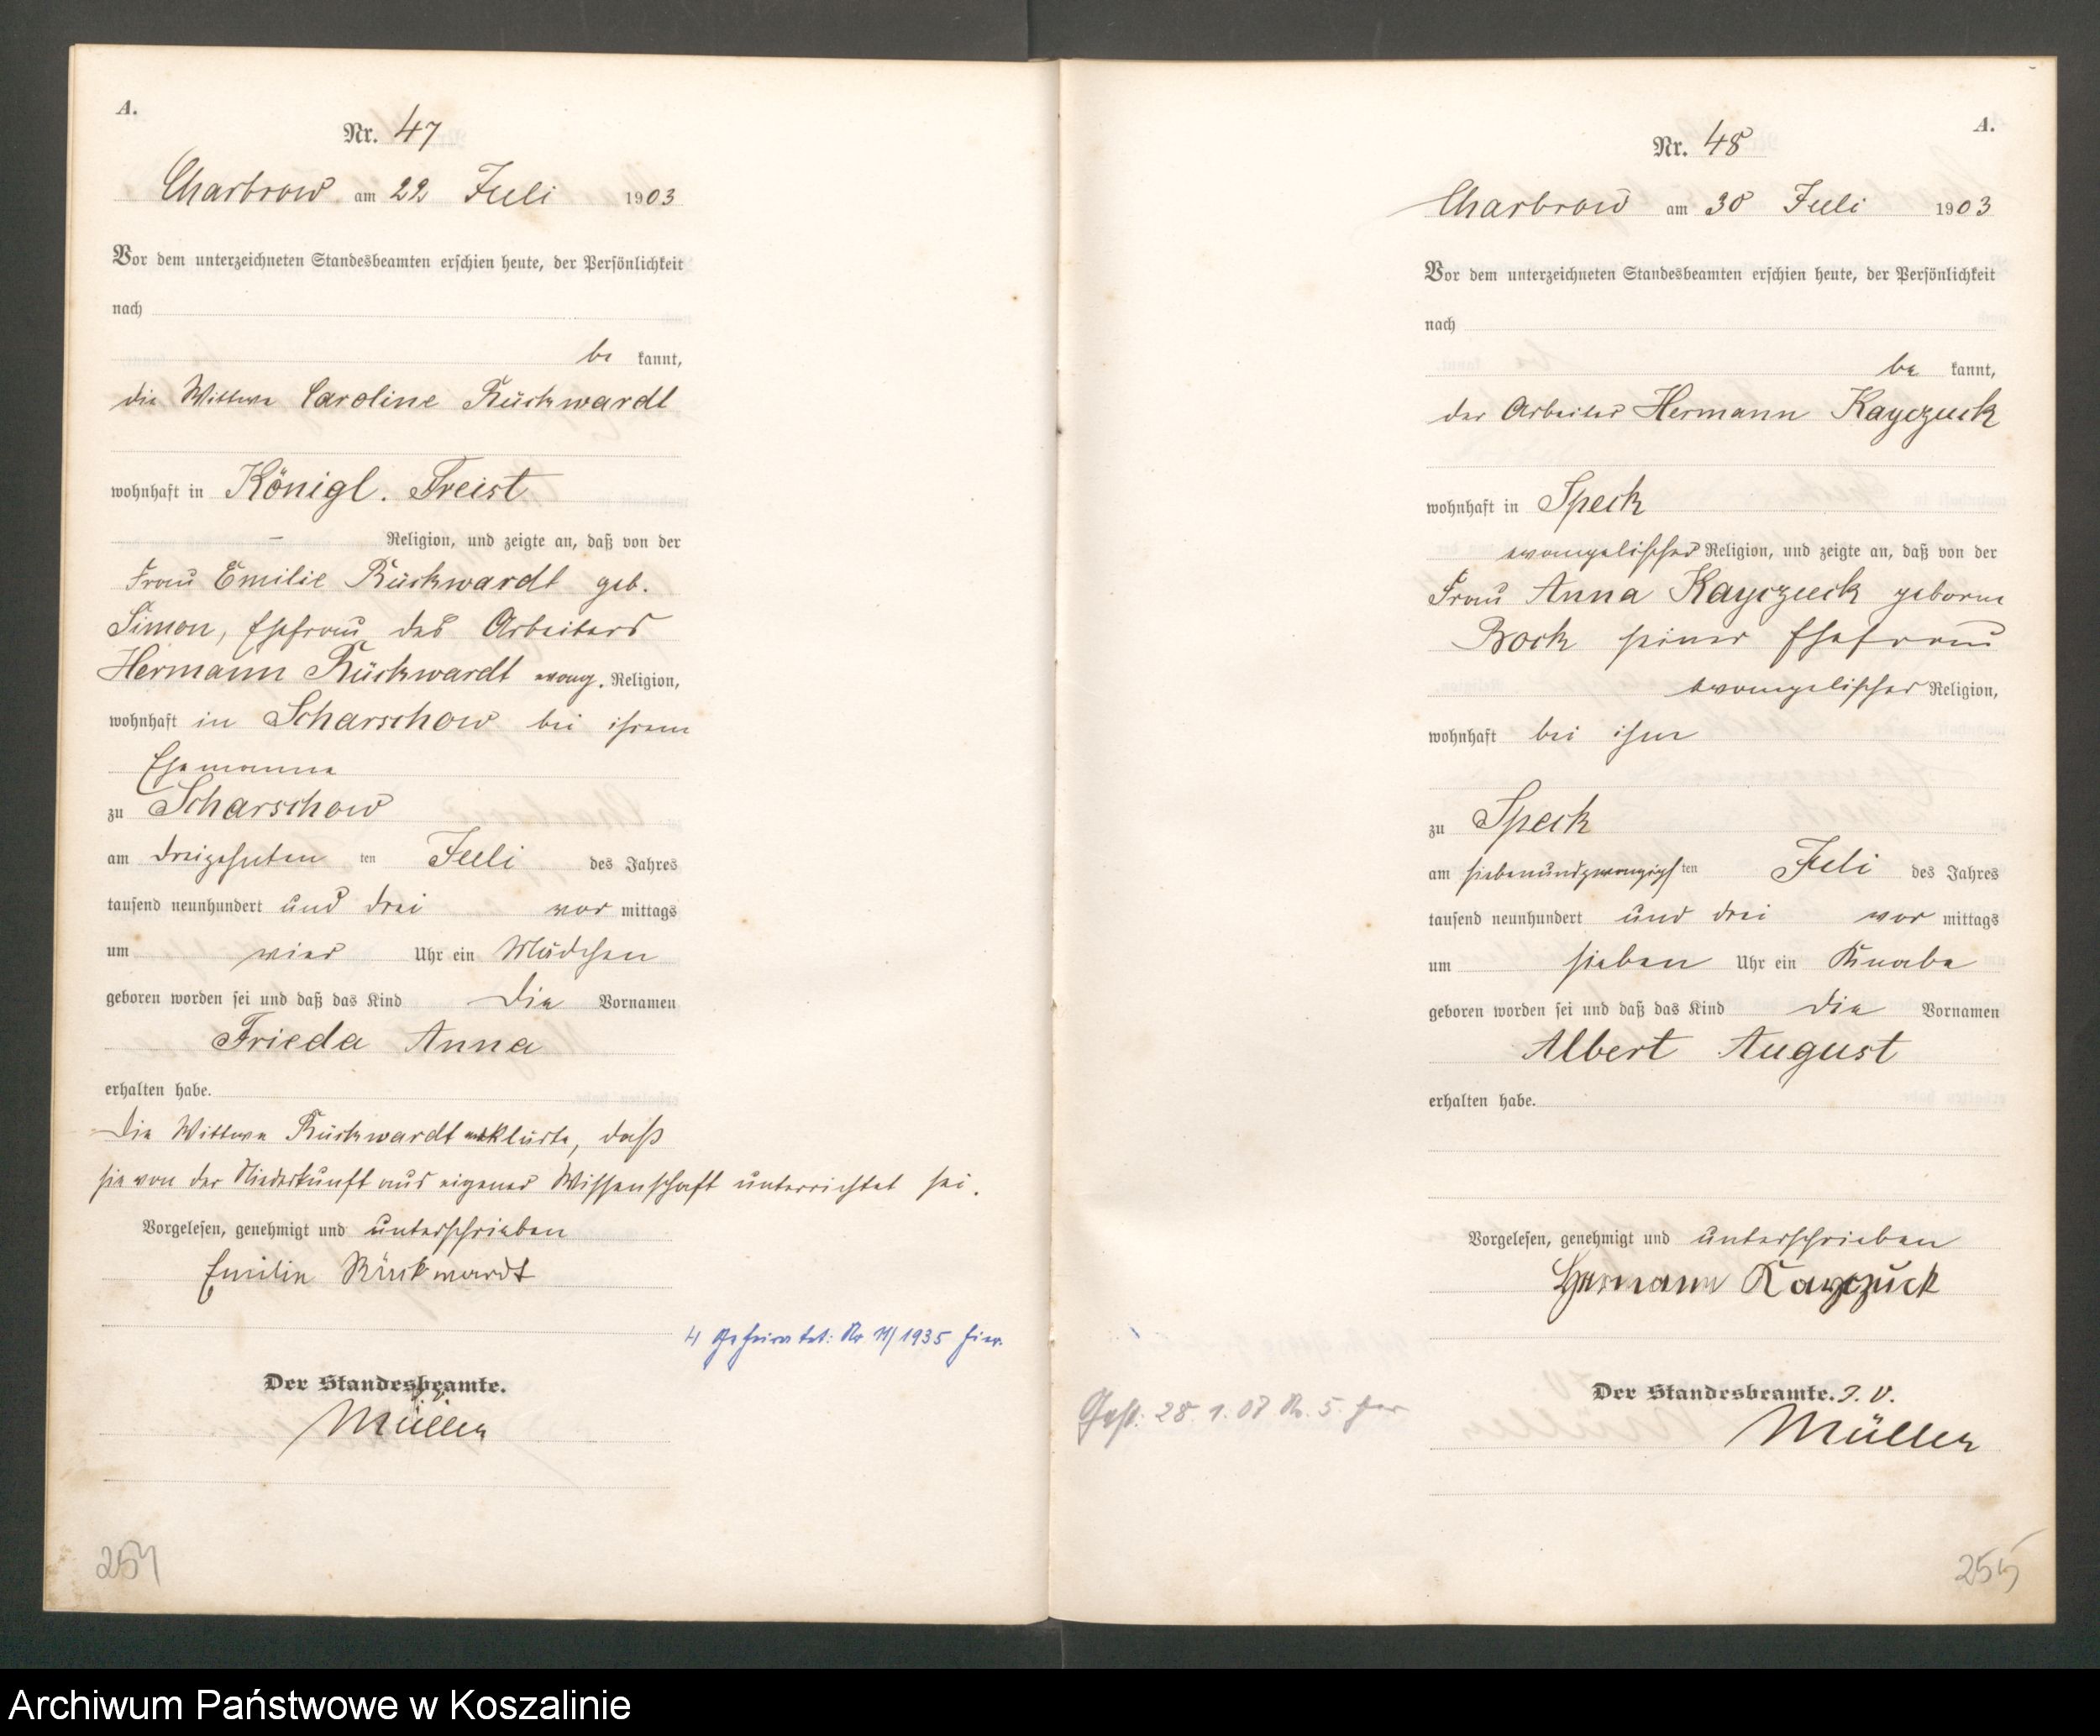 A.
Nr. 47
Charbrow am 22 Juli 1903
Vor dem unterzeichneten Standesbeamten erschien heute, der Persönlichkeit
nach
be kannt,
die Wittwe Caroline Rückwardt
wohnhaft in Königl. Freist
— Religion, und zeigte an, daß von der
Frau Emilie Rückwardt geb.
Simon, Ehefrau des Arbeiters
Hermann Rückwardt evang. Religion,
wohnhaft in Scharschow bei ihrem
Ehemanne
zu Scharschow
am dreizehnten ten Juli des Jahres
tausend neunhundert und drei vor mittags
um vier Uhr ein Mädchen
geboren worden sei und daß das Kind die Vornamen
Frieda Anna
erhalten habe.
Die Wittwe Rückwardt erklärte, daß
sie von der Niederkunft aus eigener Wissenschaft unterrichtet sei.
Vorgelesen, genehmigt und unterschrieben
Emilie Rückwardt
Geheiratet: Nr 11/1935 hier.
Der Standesbeamte.
Müller
254
A.
Nr. 48
Charbrow am 30 Juli 1903
Vor dem unterzeichneten Standesbeamten erschien heute, der Persönlichkeit
nach
be kannt,
der Arbeiter Hermann Kayczuck
wohnhaft in Speck
evangelischer Religion, und zeigte an, daß von der
Frau Anna Kayczuck geborne
Bock seiner Ehefrau
evangelischer Religion,
wohnhaft bei ihm
zu Speck
am siebenundzwanzigs ten Juli des Jahres
tausend neunhundert und drei vor mittags
um sieben Uhr ein Knabe
geboren worden sei und daß das Kind die Vornamen
Albert August
erhalten habe.
Vorgelesen, genehmigt und unterschrieben
Hermann Kayczuck
Der Standesbeamte. I. V.
Gest. 28. 1. 07 Nr. 5. hier
Müller
255
Archiwum Państwowe w Koszalinie